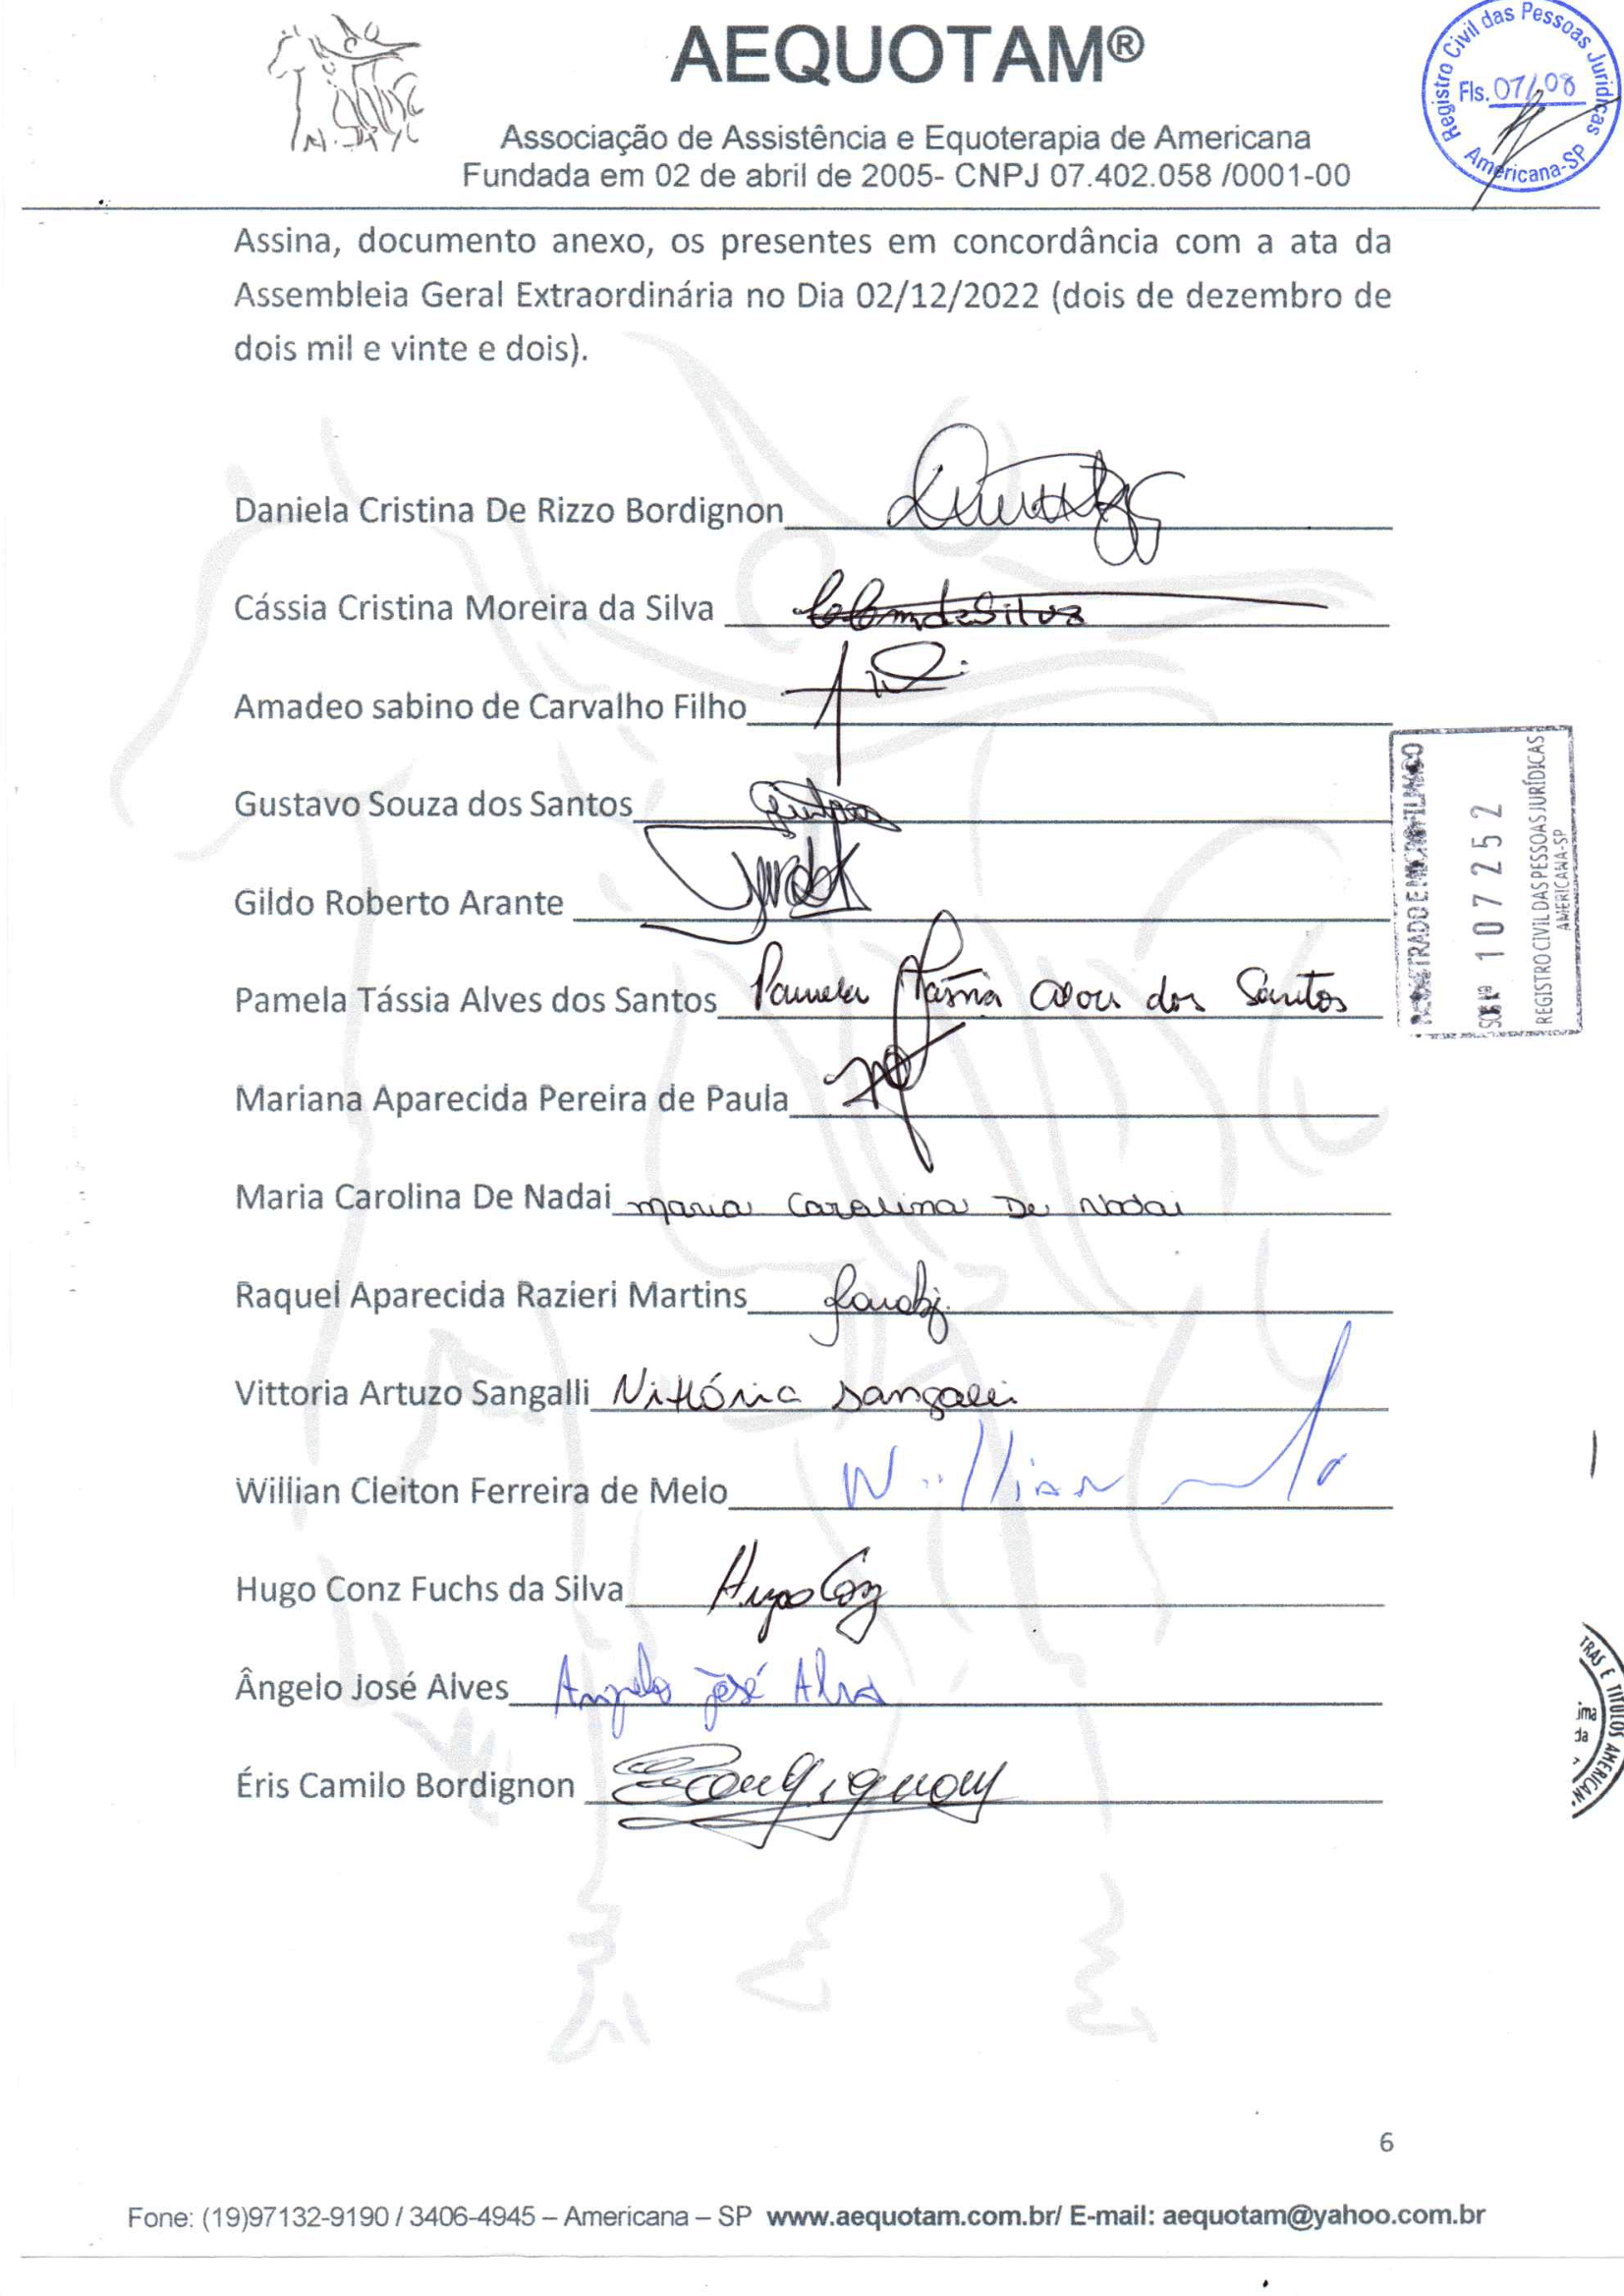 AEQUOTAM®
Associação de Assistência e Equoterapia de Americana
Fundada em 02 de abril de 2005- CNPJ 07.402.058 /0001-00
Registro Civil das Pessoas Jurídicas
Fls. 07/08
Americana-SP
Assina, documento anexo, os presentes em concordância com a ata da
Assembleia Geral Extraordinária no Dia 02/12/2022 (dois de dezembro de
dois mil e vinte e dois).
Daniela Cristina De Rizzo Bordignon
Cássia Cristina Moreira da Silva
Amadeo sabino de Carvalho Filho
Gustavo Souza dos Santos
Gildo Roberto Arante
Pamela Tássia Alves dos Santos Pamela Tássia Alves dos Santos
Mariana Aparecida Pereira de Paula
Maria Carolina De Nadai Maria Carolina De Nadai
Raquel Aparecida Razieri Martins
Vittoria Artuzo Sangalli Vittória Sangalli
Willian Cleiton Ferreira de Melo Willian
Hugo Conz Fuchs da Silva Hugo Conz
Ângelo José Alves Angelo José Alves
Éris Camilo Bordignon
REGISTRADO E MICROFILMADO
SOB Nº 107252
REGISTRO CIVIL DAS PESSOAS JURÍDICAS
AMERICANA-SP
TRAS E TITULOS AMERICAN
ima
da
6
Fone: (19)97132-9190 / 3406-4945 – Americana – SP www.aequotam.com.br/ E-mail: aequotam@yahoo.com.br